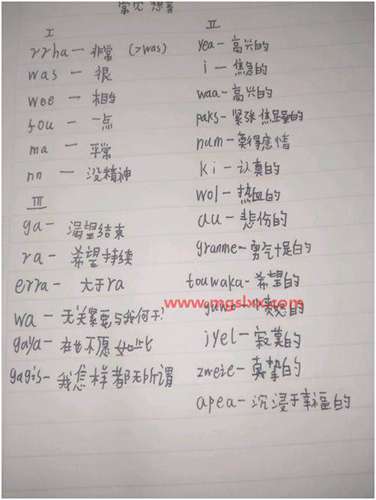 常见想音
I
rrha — 非常 (>was)
was — 很
wee — 相当
fou — 一点
ma — 平常
nn — 没精神
III
ga — 渴望结束
ra — 希望持续
erra — 大于ra
wa — 无关紧要与我何干?
gaya — 在也不愿如此
gagis — 我怎样都无所谓
II
yea — 高兴的
i — 焦急的
waa — 高兴的
paks — 紧张焦虑的
num — 莫得感情
ki — 认真的
wol — 热血的
au — 悲伤的
granme — 勇气十足的
touwaka — 希望的
www.mgsbnc.com
iyel — 寂寞的
zweie — 真挚的
apea — 沉浸于幸福的